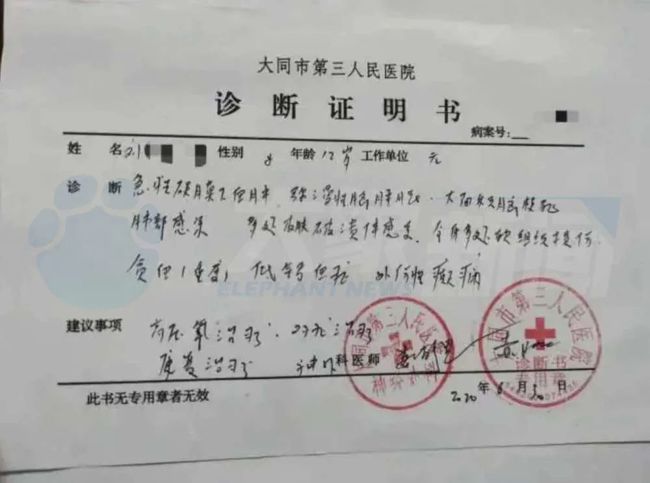 大同市第三人民医院
诊断证明书
病案号:
姓 名 刘 性别 年龄 12岁 工作单位 无
诊 断 急性硬膜下血肿、弥漫性脑肿胀、大面积脑梗死
肺部感染 多处皮肤破溃伴感染 全身多处软组织挫伤
贫血(重度) 低 外伤性癫痫
ELEPHANT NEWS
建议事项 高压氧治疗 对症治疗
康复治疗 神外科医师
2020年6月30日
此书无专用章者无效
大同市第三人民医院
大同市第三人民医院
诊断书
专用章